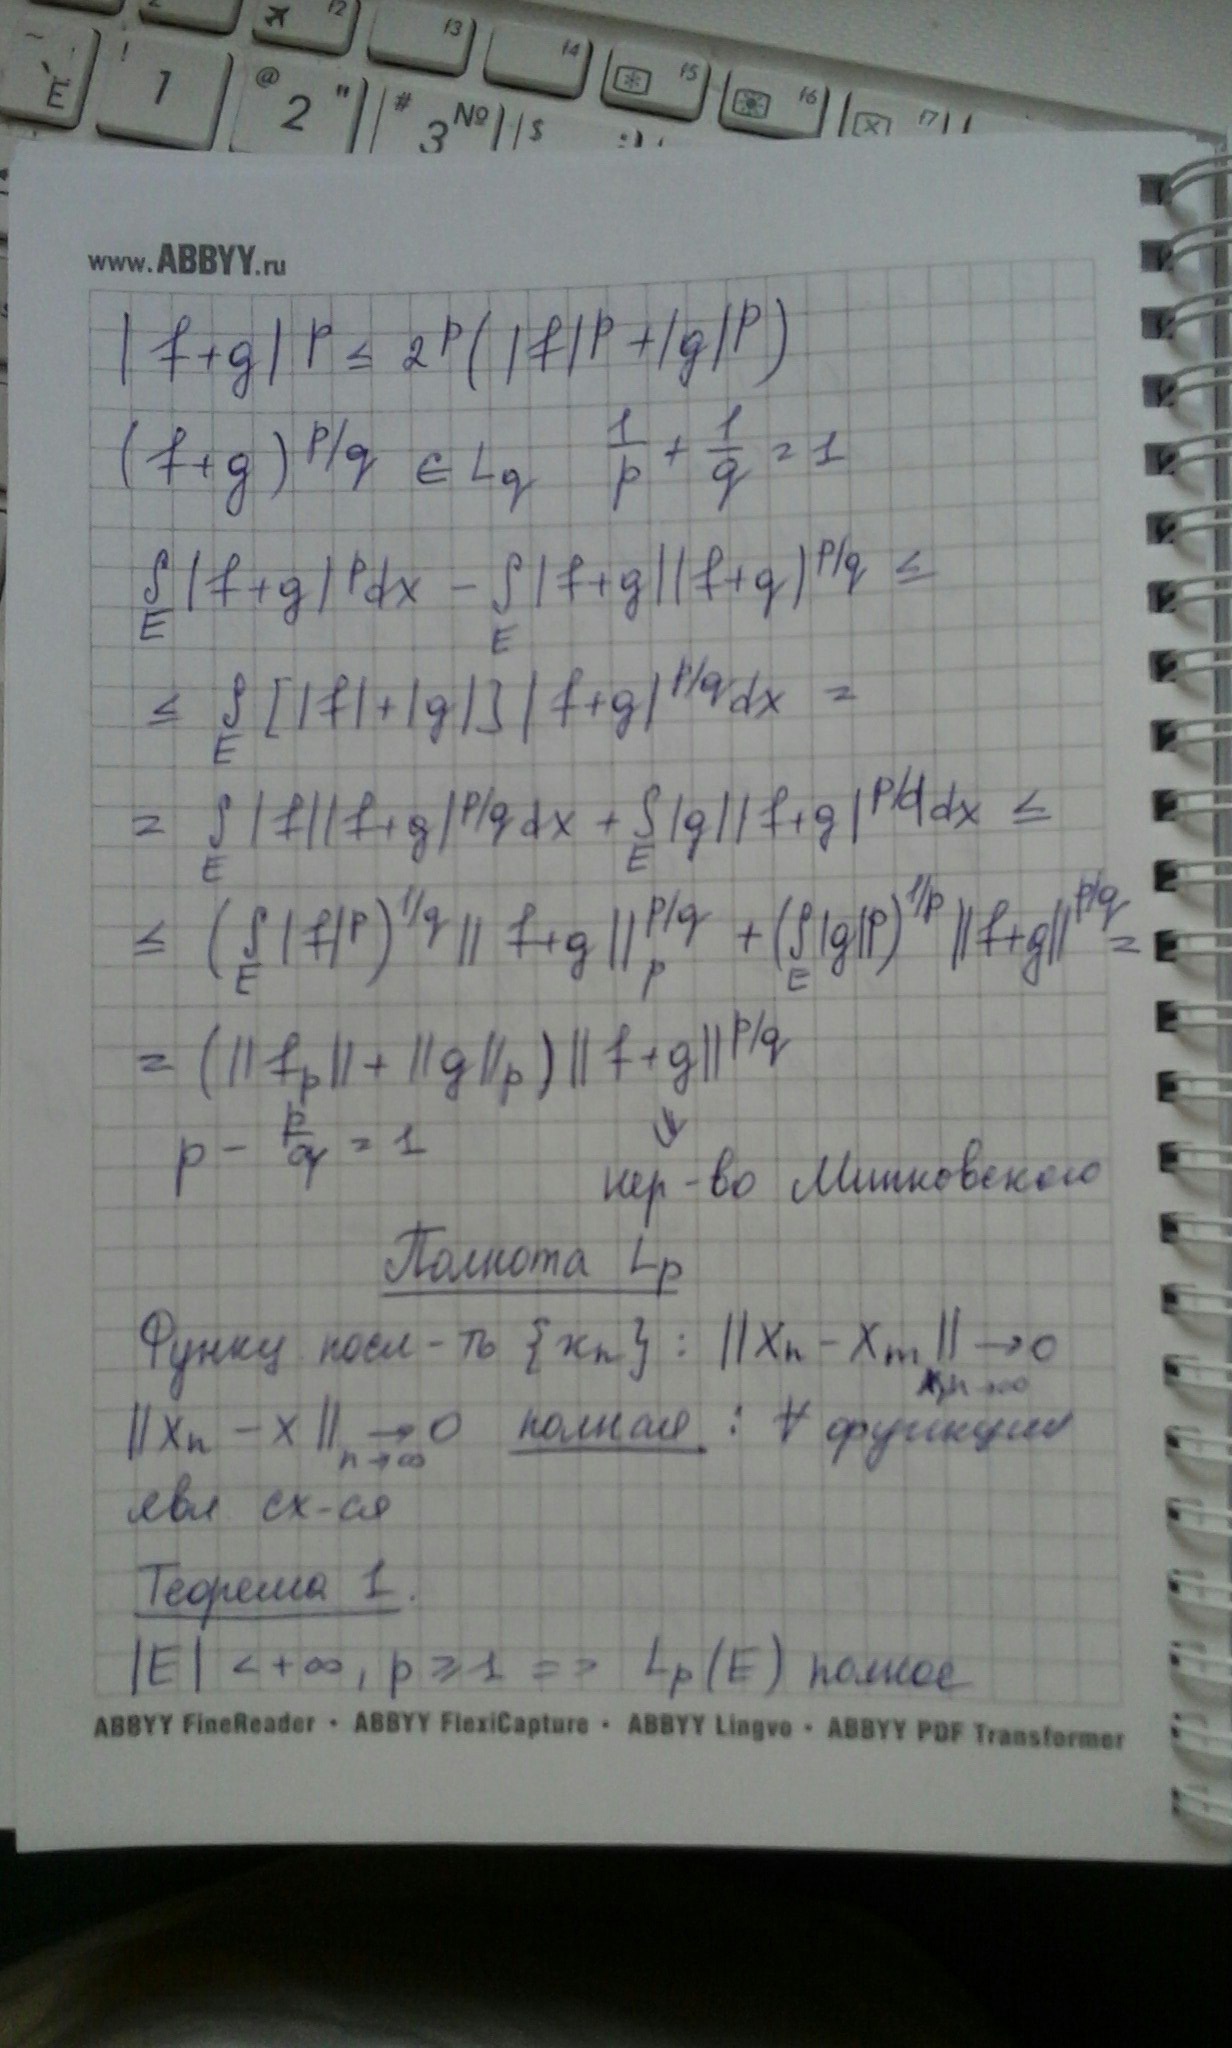 12 13 14 15 16 17
Ё ! 1 @ 2 " # 3 № $
www.ABBYY.ru
|f+g|^p ≤ 2^p(|f|^p+|g|^p)
(f+g)^{p/q} ∈ L_q 1/p + 1/q = 1
∫_E |f+g|^p dx - ∫_E |f+g||f+g|^{p/q} ≤
≤ ∫_E [|f|+|g|] |f+g|^{p/q} dx =
= ∫_E |f||f+g|^{p/q} dx + ∫_E |g||f+g|^{p/q} dx ≤
≤ (∫_E |f|^p)^{1/q} ||f+g||_p^{p/q} + (∫_E |g|^p)^{1/p} ||f+g||^{p/q} =
= (||f_p|| + ||g||_p) ||f+g||^{p/q}
p - p/q = 1
↓
нер-во Минковского
Полнота L_p
Функц посл-ть {x_n} : ||x_n - x_m|| → 0
||x_n - x||_{n→∞} → 0 полная : ∀ функция
явл сх-ся
Теорема 1.
|E| < +∞, p ≥ 1 => L_p(E) полное
ABBYY FineReader • ABBYY FlexiCapture • ABBYY Lingvo • ABBYY PDF Transformer